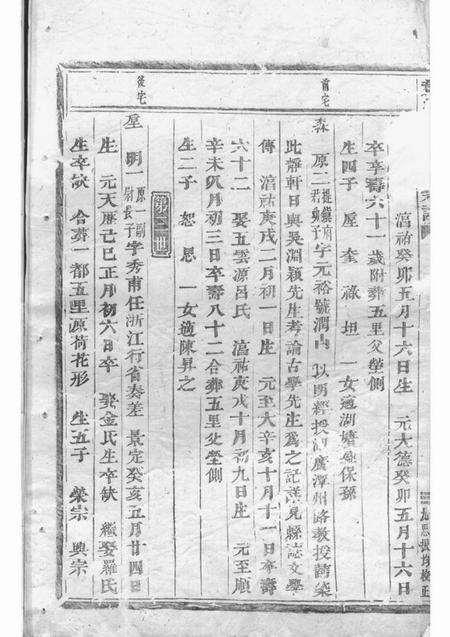 前宅
後宅
淳祐癸卯五月十六日生 元大德癸卯五月十六日
卒享壽六十一歲附葬五里父塋側
生四子 垕 奎 祿 坦 一女適湖塘
森 原二 提領府君幼子 字元裕號潤 以明經授湖廣潭州路教授嘗築
此靜軒日與吳淵穎先生考論古學先生為之記詳見縣誌文學
傳 淳祐庚戌二月初一日生 元至大辛亥十月十一日卒壽
六十二 娶五雲源呂氏 淳祐庚戌十月初九日生 元至順
辛未八月初三日卒壽八十二合葬五里父塋側
生二子 恕 思 一女適陳昇之
第二世
垕 明一 原一副尉長子 字秀甫任浙江行省奏差 景定癸亥五月廿四日
生 元天曆己巳正月初六日卒 娶金氏生卒缺 繼娶羅氏
生卒缺 合葬一都五里源荷花形 生五子 榮宗 興宗